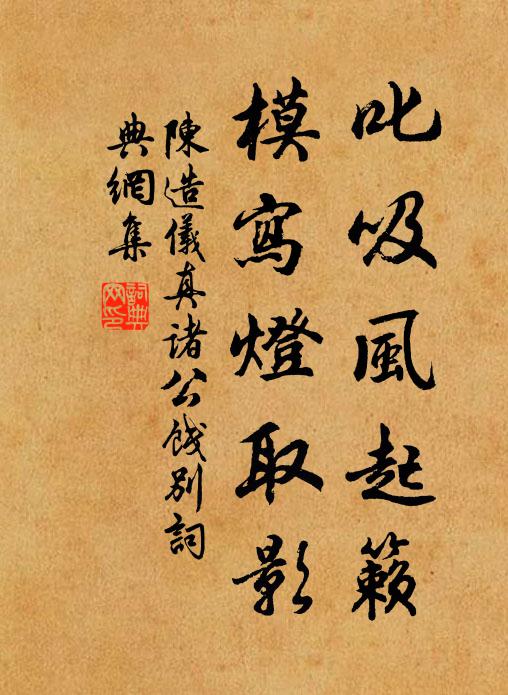 叱吸風起籟
模寫燈取影
陳造儀真諸公餞別詞
典網集
詞典網印